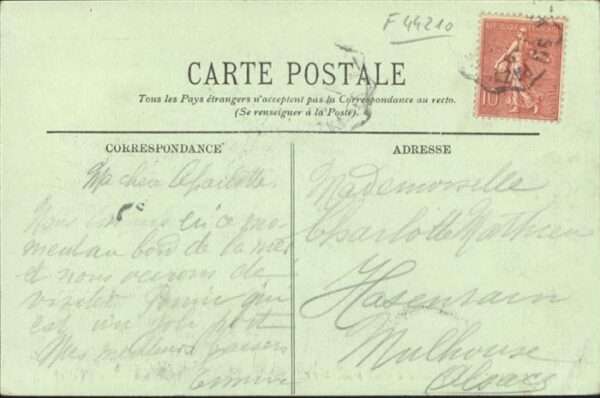 F 44210
CARTE POSTALE
Tous les Pays étrangers n'acceptent pas la Correspondance au recto.
(Se renseigner à la Poste).
10
CORRESPONDANCE
Ma chère Charlotte.
Nous sommes en ce mo-
ment au bord de la mer
et nous venons de
visiter Pornic qui
est un joli port
Mes meilleurs baisers
ADRESSE
Mademoiselle
Charlotte Mathieu
Hasenrain
Mulhouse
Alsace